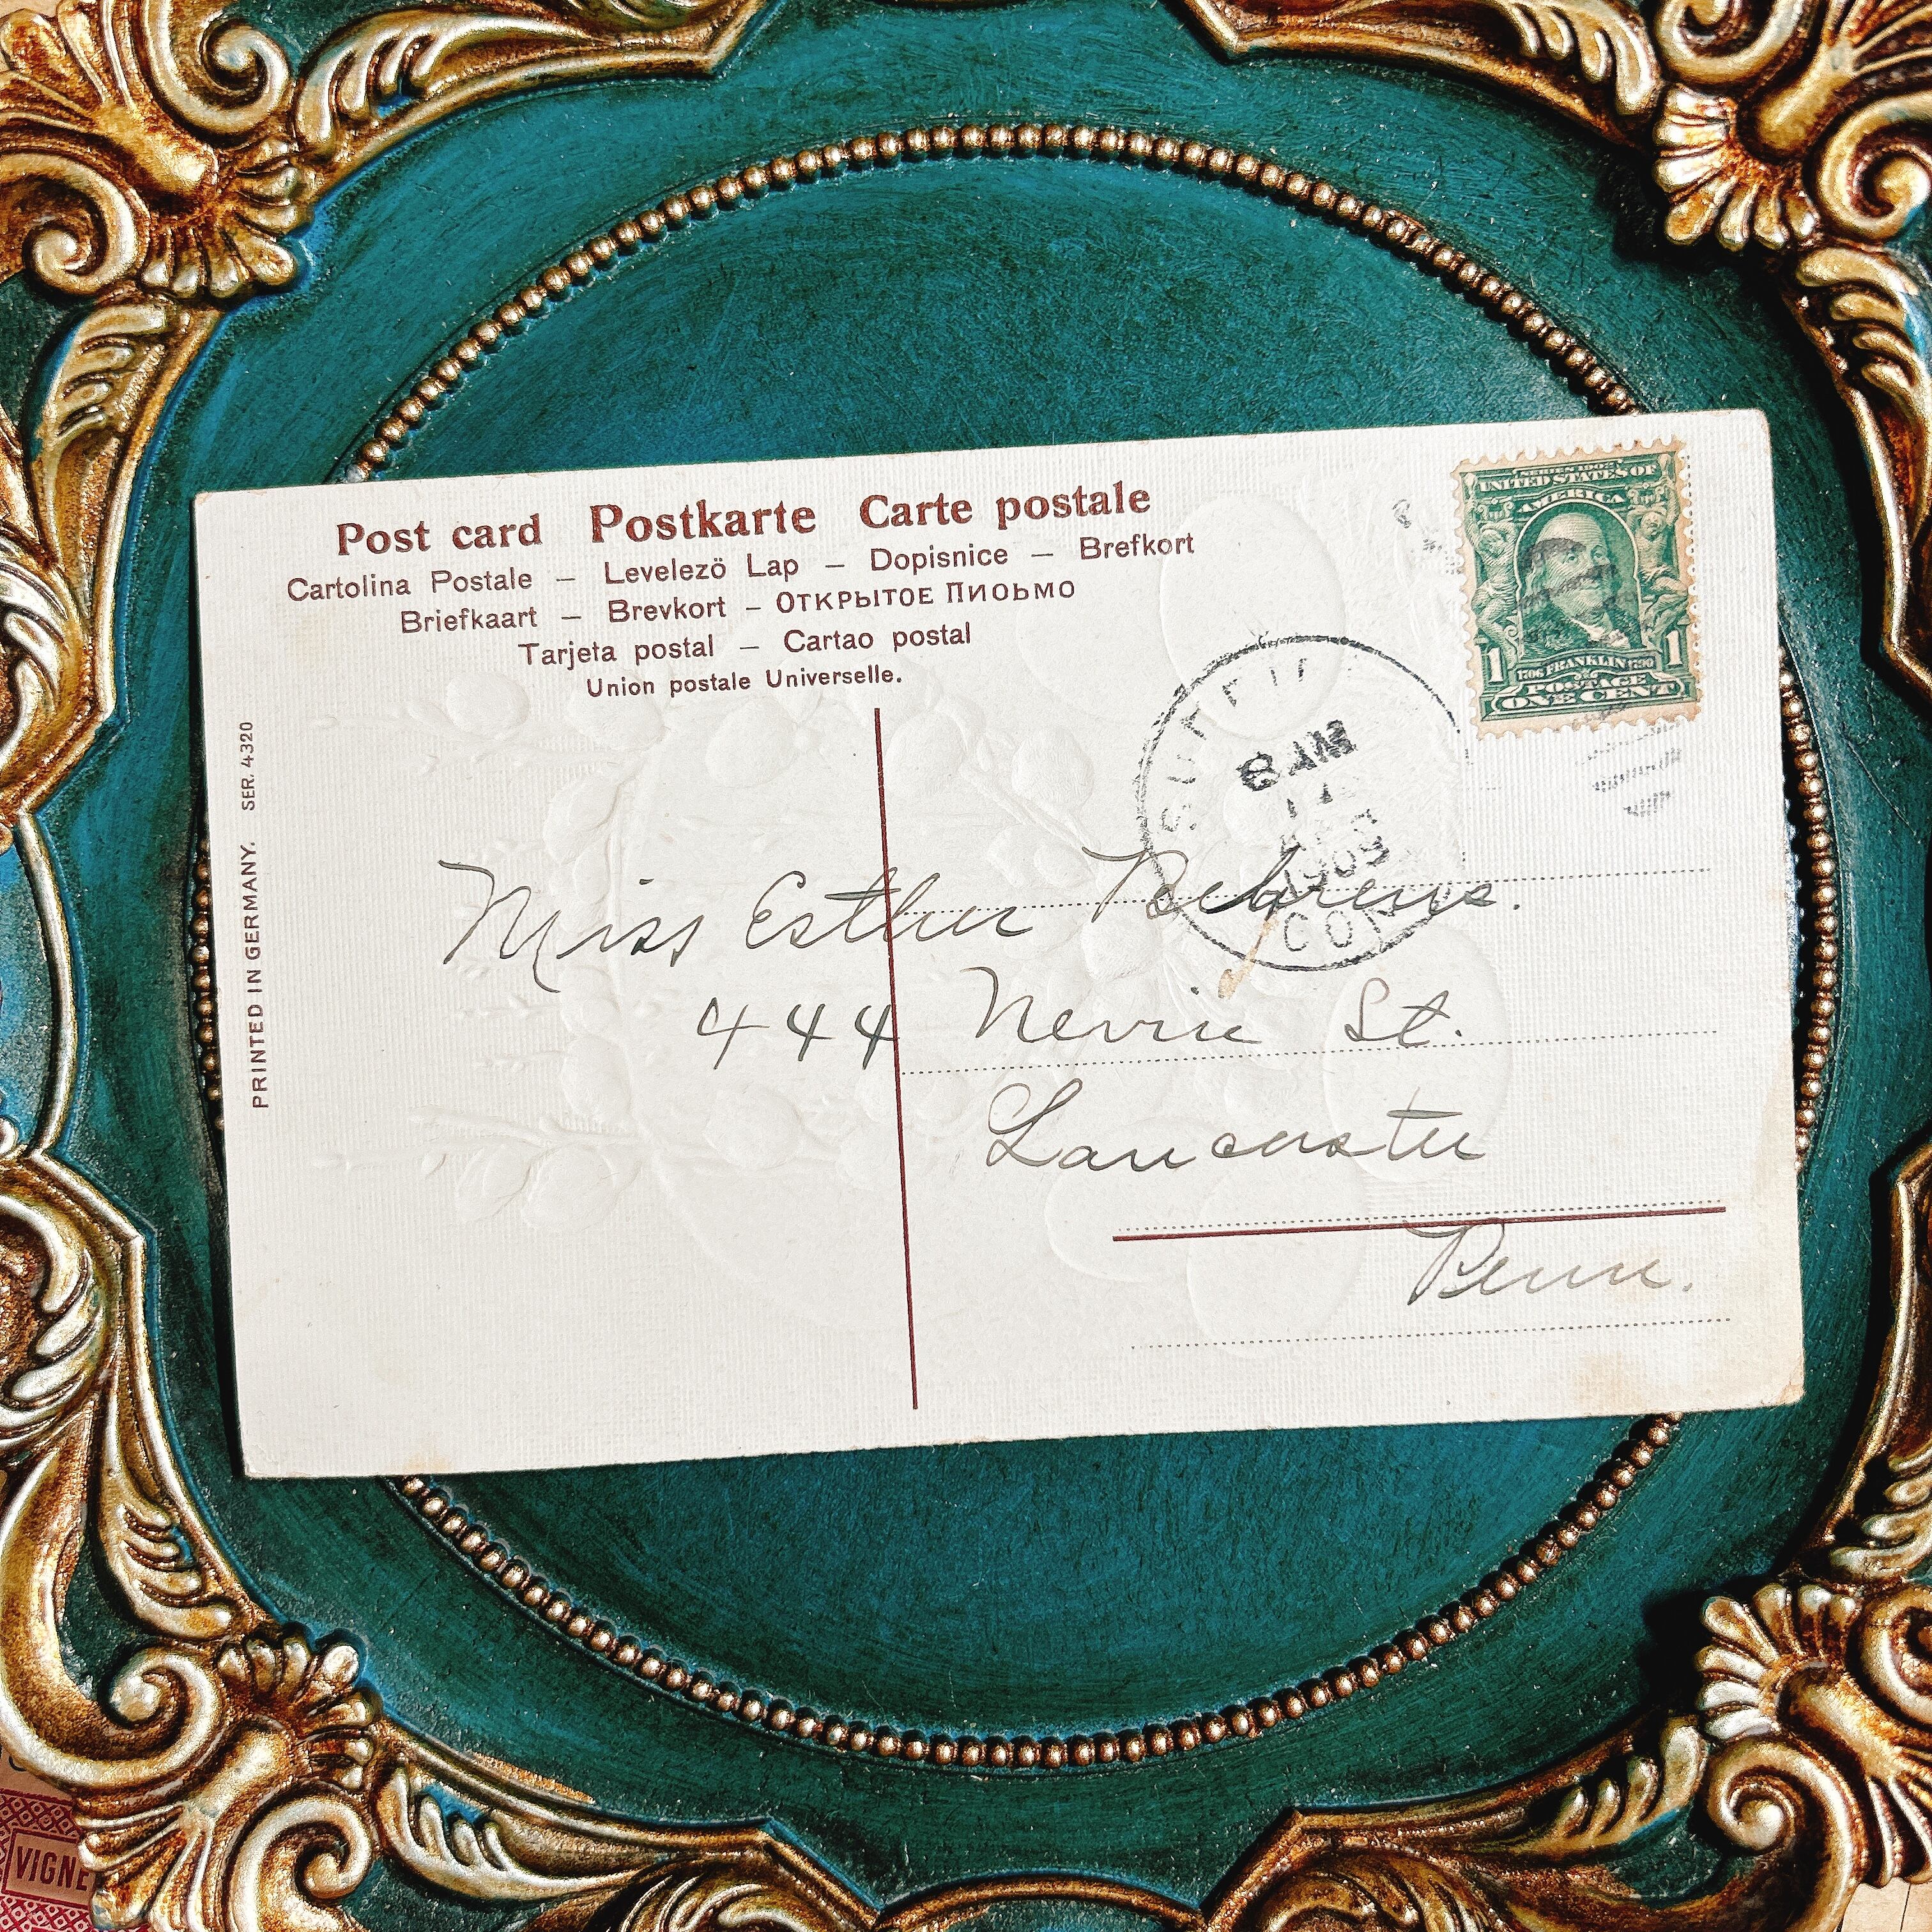 Post card Postkarte Carte postale
Cartolina Postale – Levelezö Lap – Dopisnice – Brefkort
Briefkaart – Brevkort – ОТКРЫТОЕ ПИОЬМО
Tarjeta postal – Cartao postal
Union postale Universelle.
SERIES 1902
UNITED STATES OF
AMERICA
1 1706 FRANKLIN 1790 1
POSTAGE
ONE CENT
8 AM
CON
Miss Esther Behrens.
444 Nevin St.
Lancaster
Penn.
PRINTED IN GERMANY. SER. 4320
VIGNE